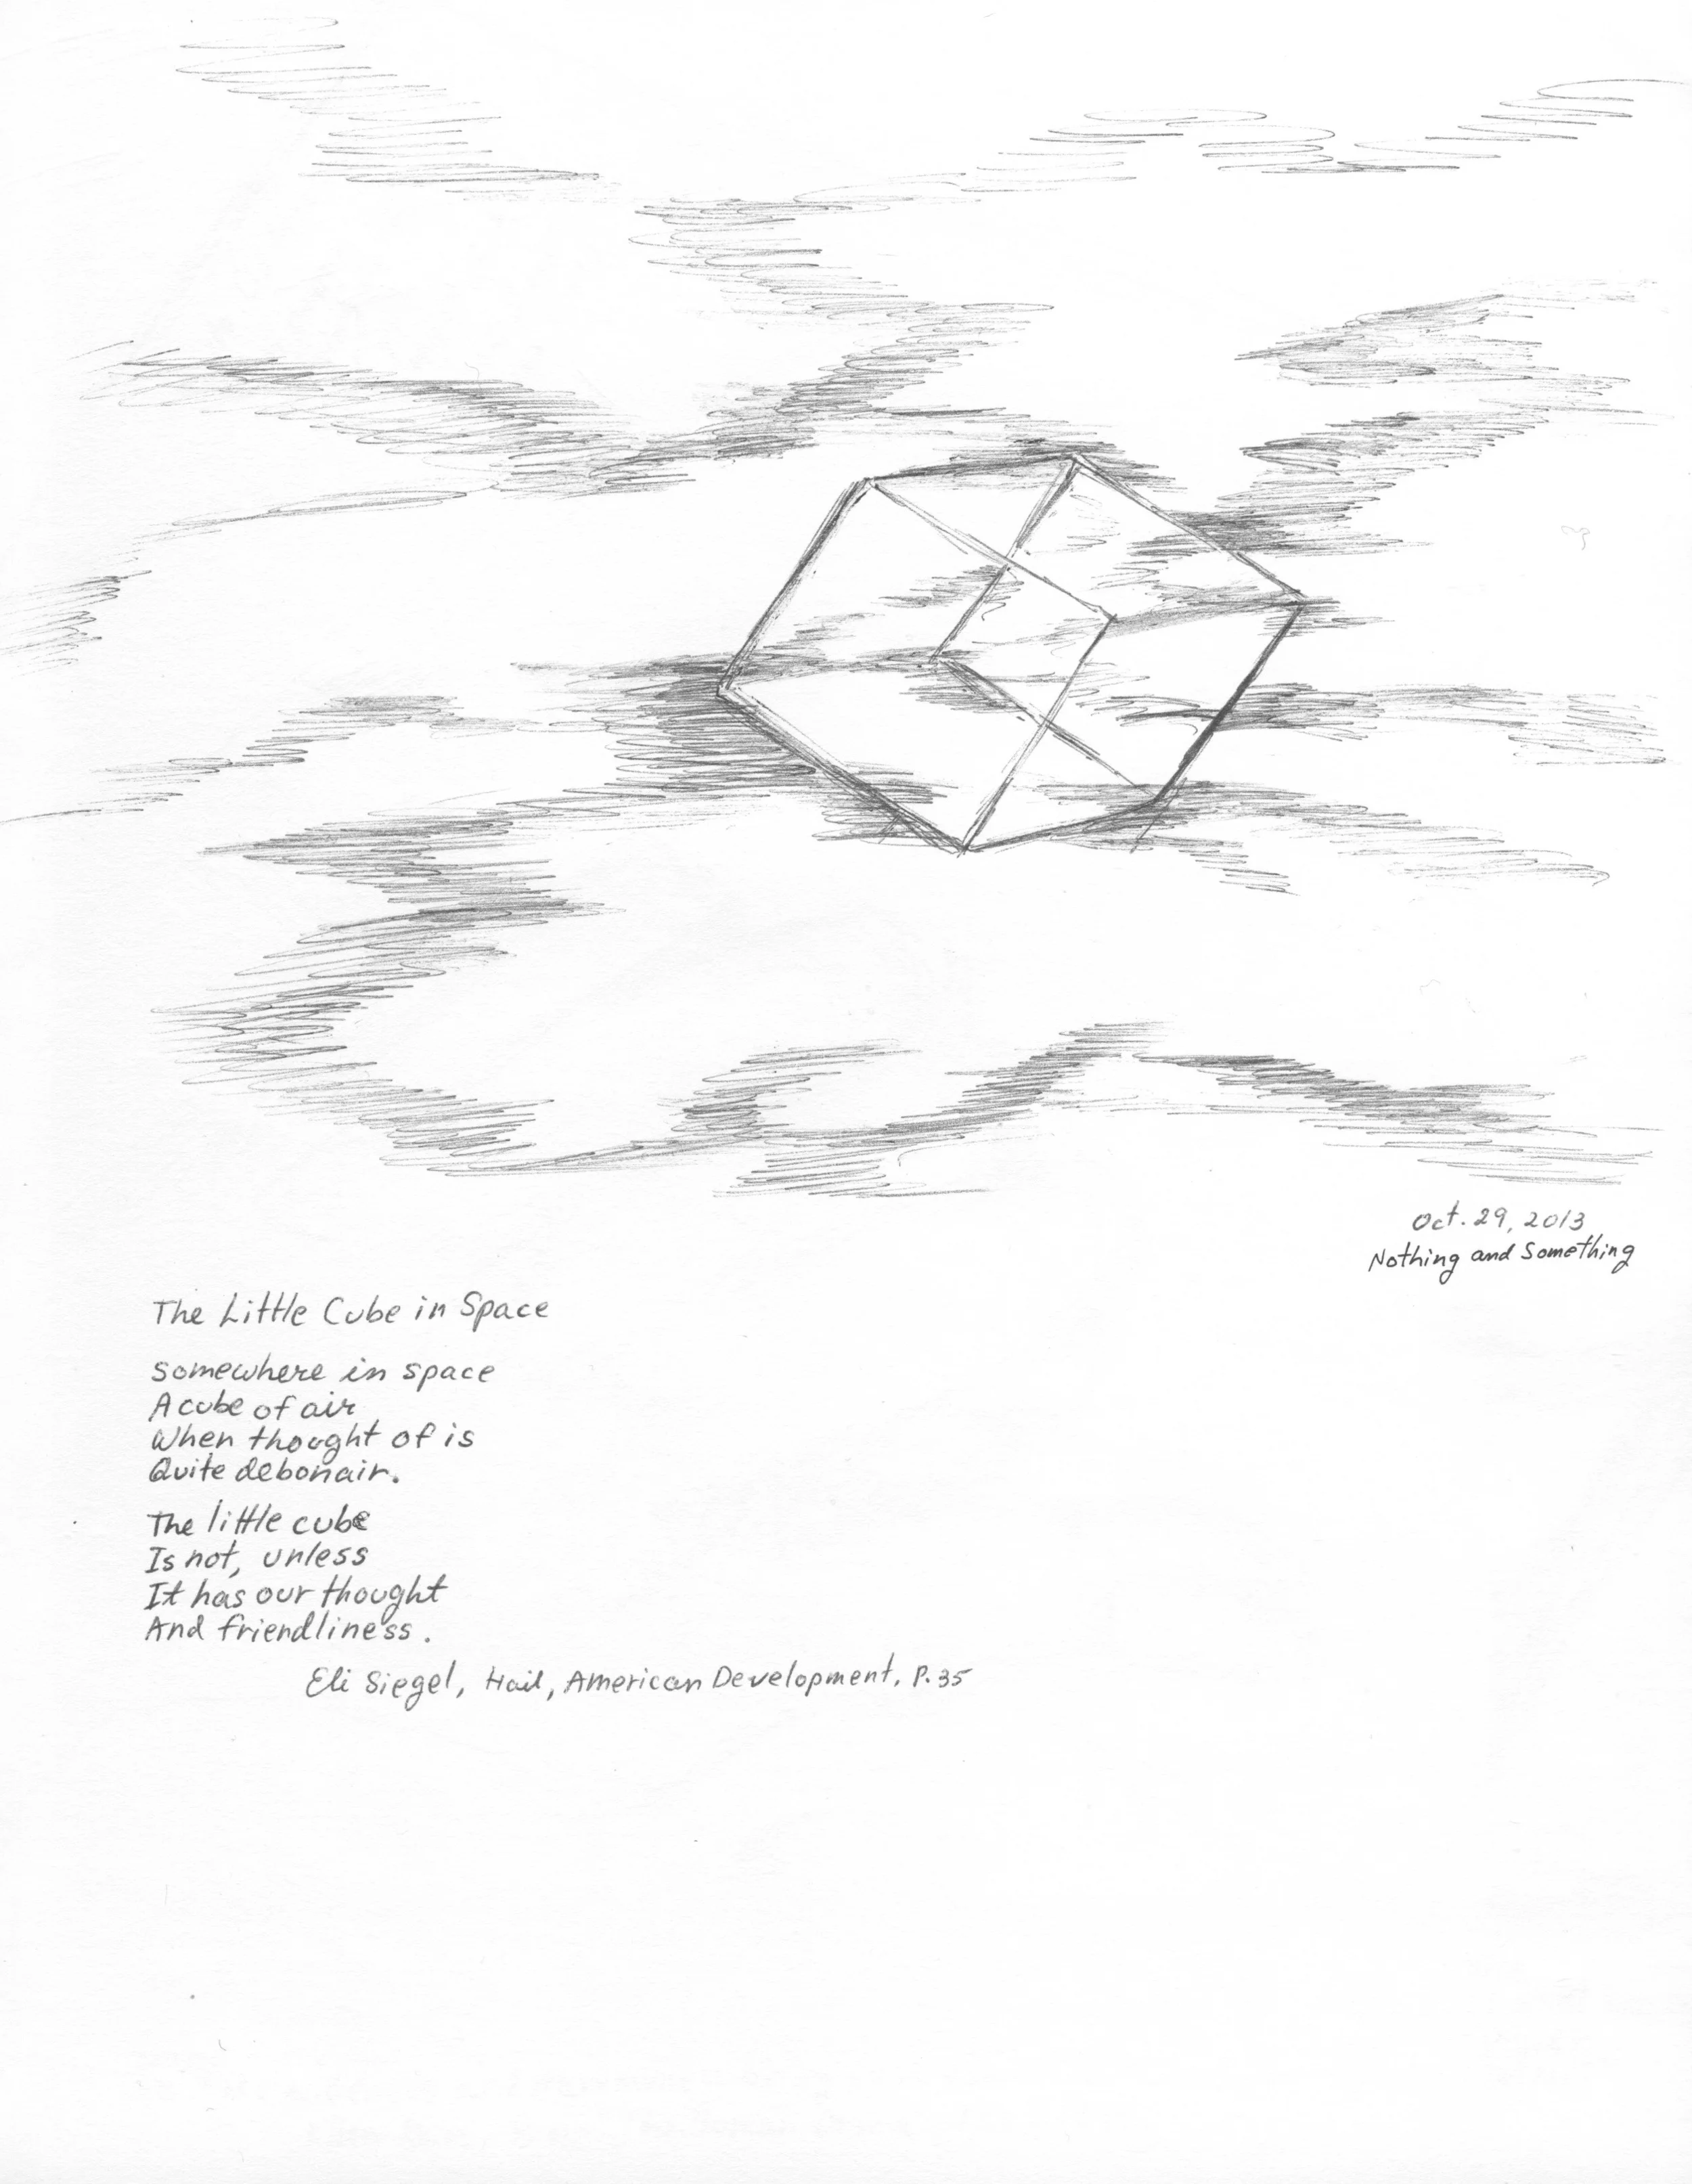 Oct. 29, 2013
Nothing and Something
The Little Cube in Space
Somewhere in space
A cube of air
When thought of is
Quite debonair.
The little cube
Is not, unless
It has our thought
And friendliness.
Eli Siegel, Hail, American Development, P. 35